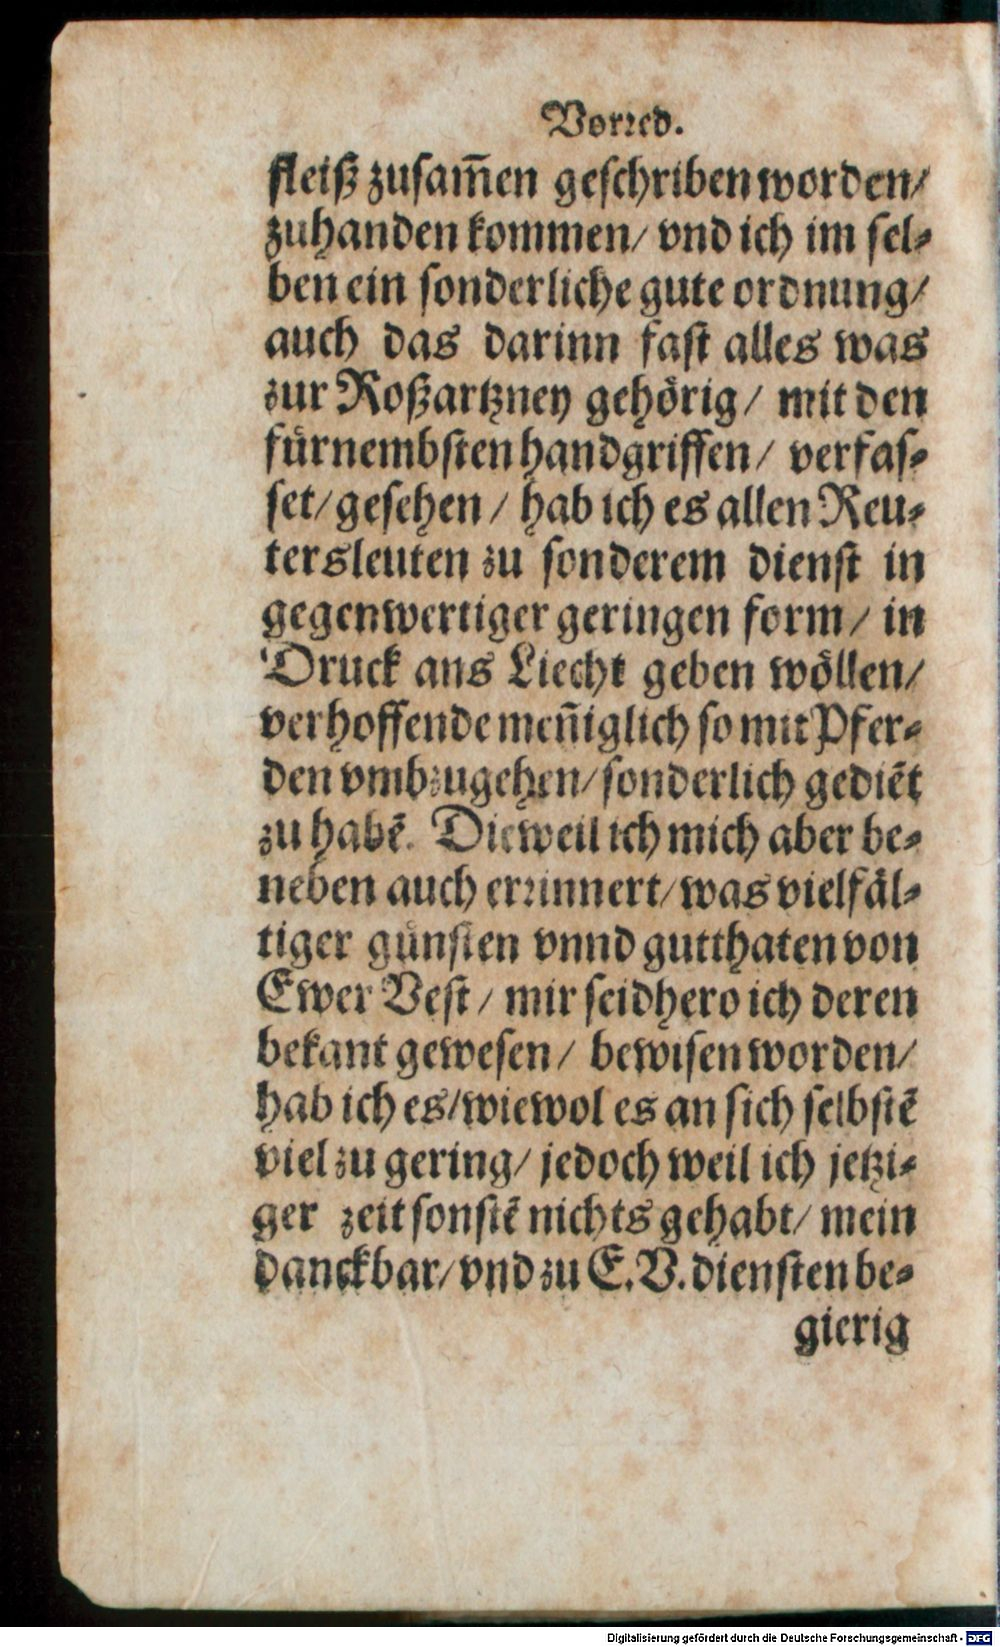 Vorꝛed.
fleiß zuſam̃en geſchriben worden/
zuhanden kommen/ vnd ich im ſel⸗
ben ein ſonderliche gute ordnung/
auch das darinn faſt alles was
zur Roßartzney gehoͤrig/ mit den
fuͤrnembſten handgriffen/ verfaſ⸗
ſet/ geſehen/ hab ich es allen Reu⸗
tersleuten zu ſonderem dienſt in
gegenwertiger geringen form/ in
Druck ans Liecht geben woͤllen/
verhoffende meñiglich ſo mit Pfer⸗
den vmbzugehen/ ſonderlich gediẽt
zu habẽ. Dieweil ich mich aber be⸗
neben auch erꝛinnert/ was vielfaͤl⸗
tiger guͤnſten vnnd gutthaten von
Ewer Veſt/ mir ſeidhero ich deren
bekant geweſen/ bewiſen worden/
hab ich es/ wiewol es an ſich ſelbſtẽ
viel zu gering/ jedoch weil ich jetzi⸗
ger zeit ſonſtẽ nichts gehabt/ mein
danckbar/ vnd zu E. V. dienſten be⸗
gierig
Digitalisierung gefördert durch die Deutsche Forschungsgemeinschaft - DFG